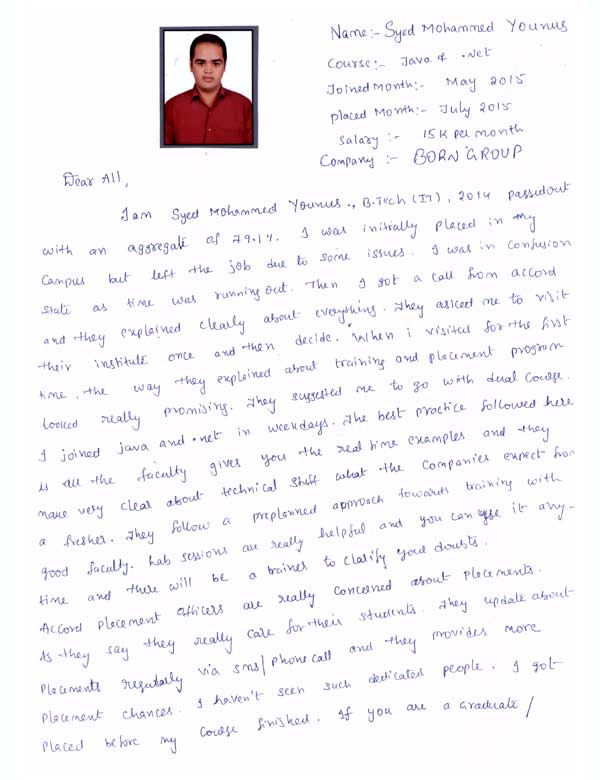 Name:- Syed Mohammed Younus
Course:- Java & .Net
Joined Month:- May 2015
Placed Month:- July 2015
Salary :- 15K Per month
Company :- BORN GROUP
Dear All,
I am Syed Mohammed Younus., B.Tech (IT), 2014 passedout
with an aggregate of 79.1%. I was initially placed in my
Campus but left the job due to some issues. I was in confusion
state as time was running out. Then I got a call from accord
and they explained clearly about everything. They asked me to visit
their institute once and then decide. When i visited for the first
time, the way they explained about training and placement program
looked really promising. They suggested me to go with dual course.
I joined java and .net in weekdays. The best practice followed here
is all the faculty gives you the real time examples and they
make very clear about technical stuff what the Companies expect from
a fresher. They follow a preplanned approach towards training with
good faculty. Lab sessions are really helpful and you can use it any-
time and there will be a trainer to clarify your doubts.
Accord Placement Officers are really concerned about placements.
As they say they really care for their students. They update about
Placements regularly via sms/phone call and they provides more
Placement chances. I haven't seen such dedicated people. I got
Placed before my Course finished. If you are a Graduate/